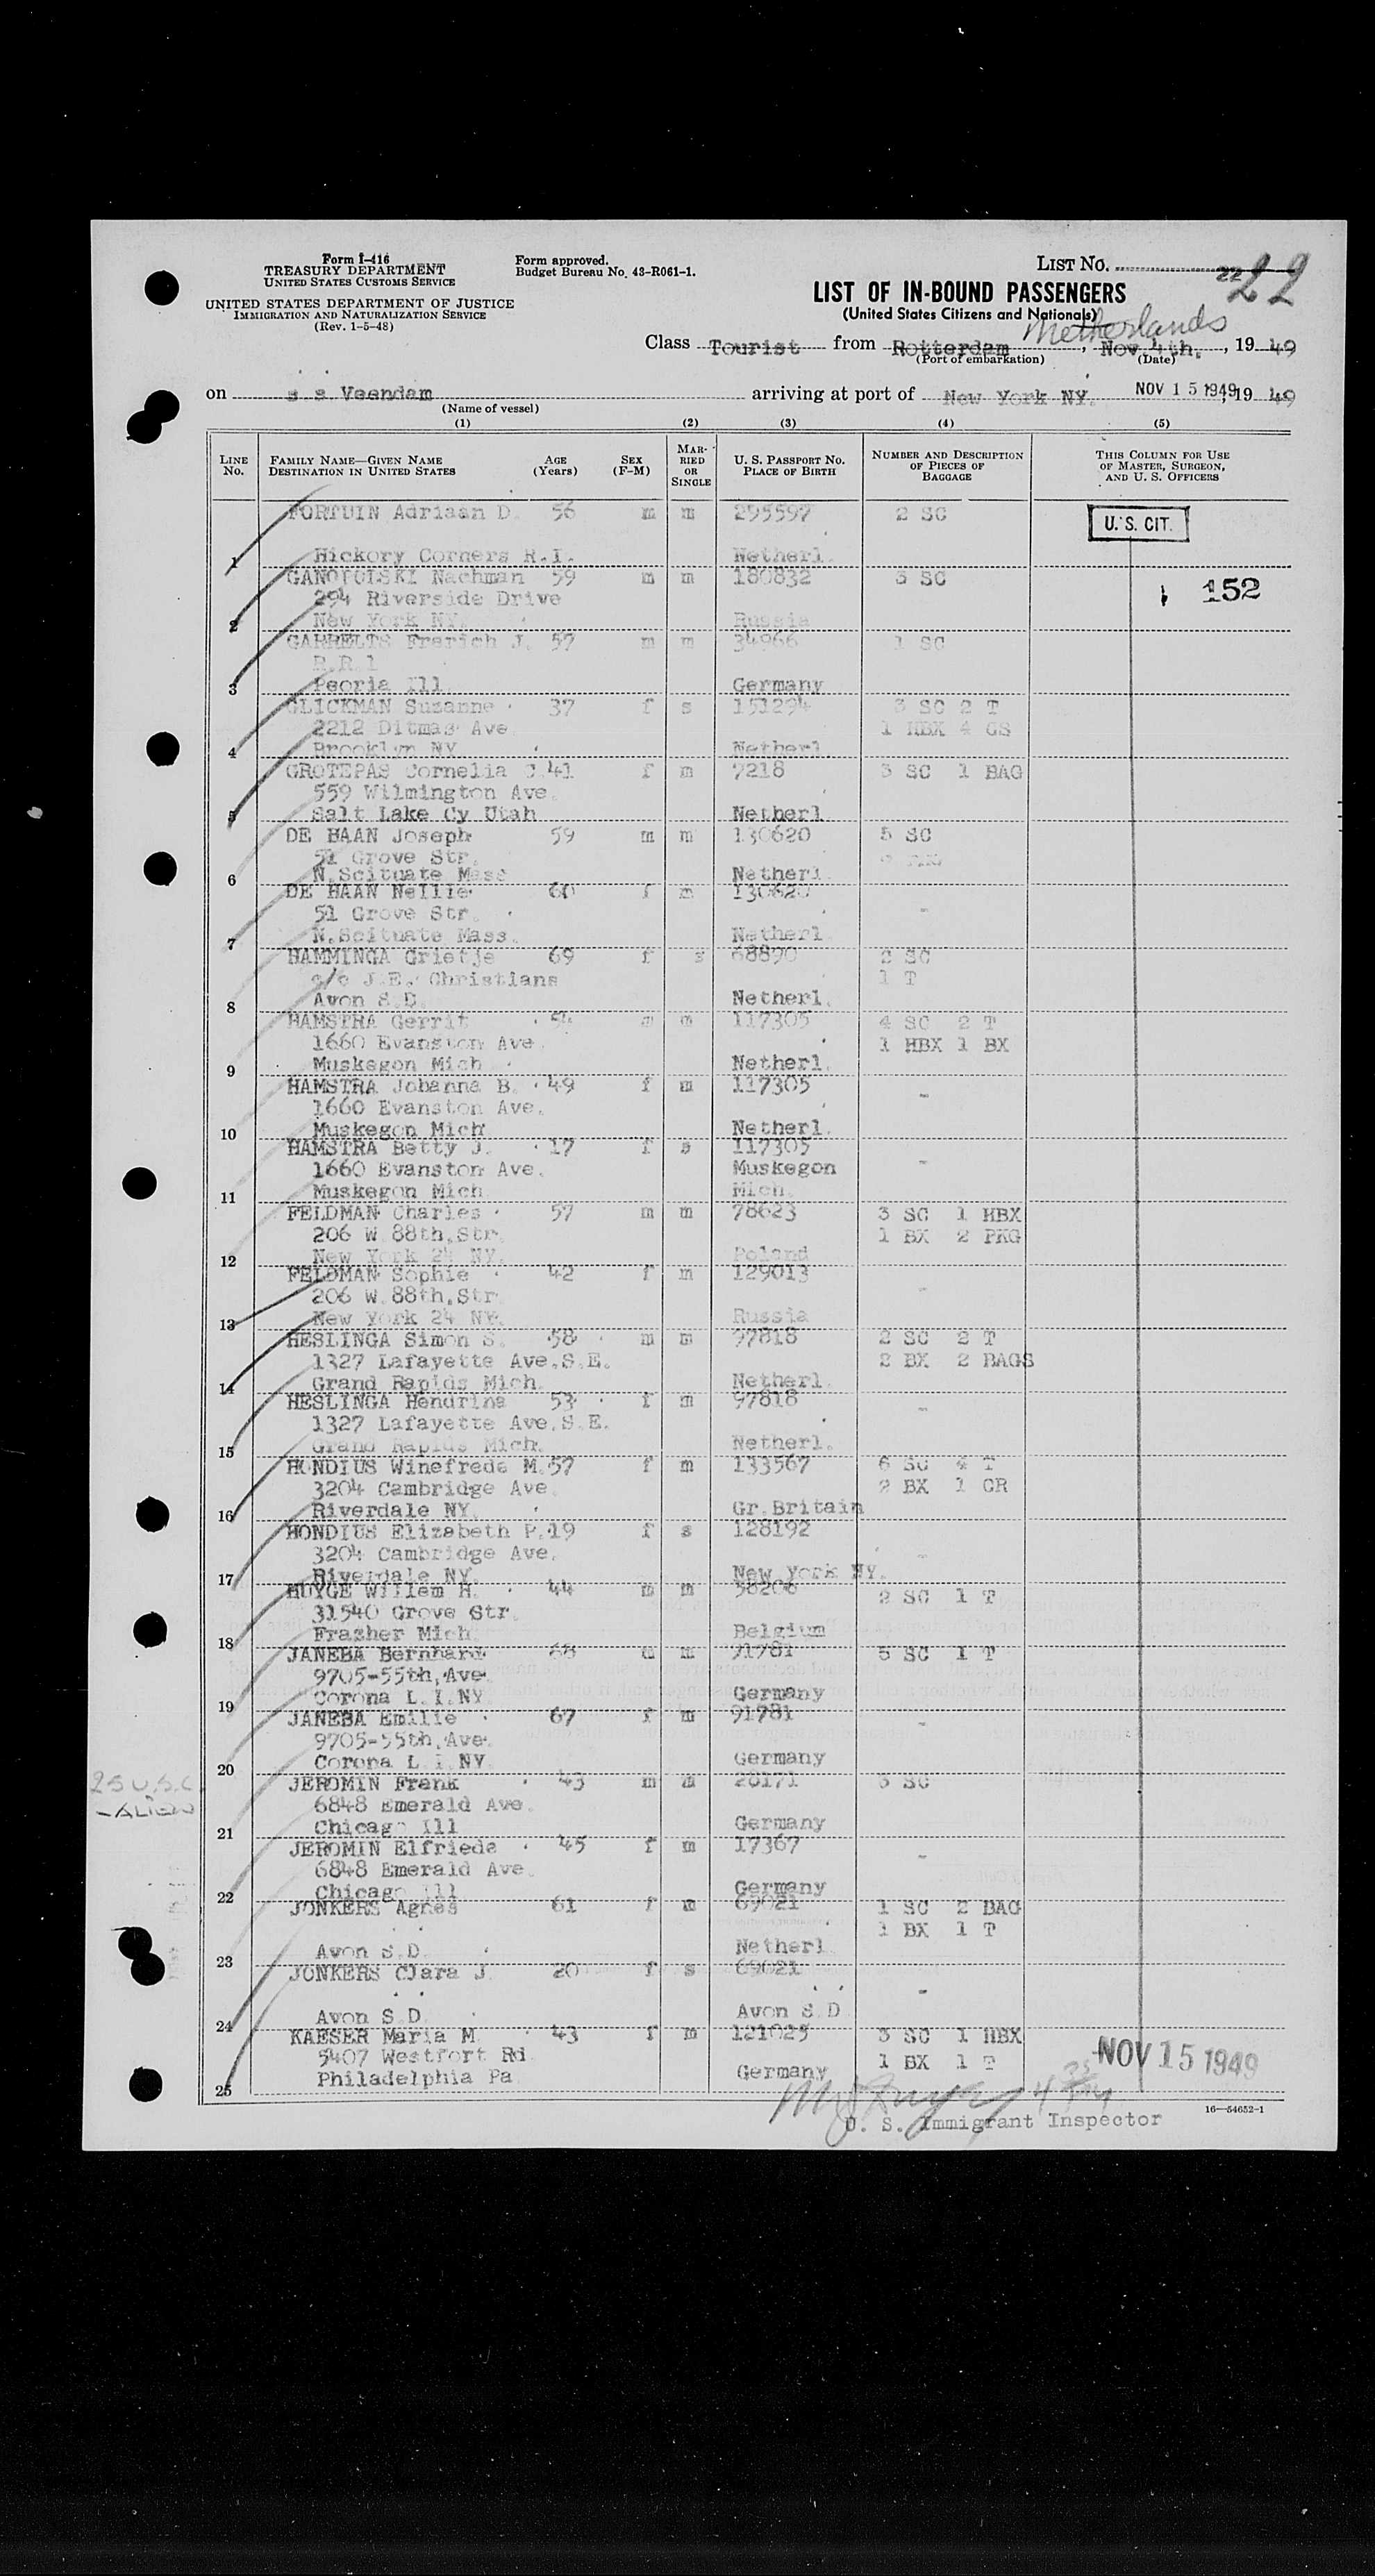 Form I-416
TREASURY DEPARTMENT
UNITED STATES CUSTOMS SERVICE
UNITED STATES DEPARTMENT OF JUSTICE
IMMIGRATION AND NATURALIZATION SERVICE
(Rev. 1-5-48)
Form approved.
Budget Bureau No. 43-R061-1.
LIST No. 22 22
LIST OF IN-BOUND PASSENGERS
(United States Citizens and Nationals)
Netherlands
Class Tourist from Rotterdam, Nov. 4th., 19 49
(Port of embarkation) (Date)
on s s Veendam arriving at port of New York NY. NOV 15 1949, 19 49
(Name of vessel)
(1) (2) (3) (4) (5)
LINE No. FAMILY NAME—GIVEN NAME DESTINATION IN UNITED STATES AGE (Years) SEX (F-M) MARRIED OR SINGLE U. S. PASSPORT No. PLACE OF BIRTH NUMBER AND DESCRIPTION OF PIECES OF BAGGAGE THIS COLUMN FOR USE OF MASTER, SURGEON, AND U. S. OFFICERS
FORTUIN Adriaan D. 56 m m 295597 2 SC U. S. CIT.
1 Hickory Corners R.I. Netherl.
Nachman 59 m m 180832 3 SC 152
294 Riverside Drive
2 New York NY. Russia
GARRELTS Frerich J. 57 m m 34966 1 SC
R.R.1
3 Peoria Ill. Germany
GLICKMAN Suzanne 37 f s 151294 3 SC 2 T
2212 Ditmas Ave 1 HBX 4 GS
4 Brooklyn NY Netherl.
GROTEPAS Cornelia C. 41 f m 7218 3 SC 1 BAG
559 Wilmington Ave.
5 Salt Lake Cy Utah Netherl
DE HAAN Joseph 59 m m 130620 5 SC
51 Grove Str.
6 N.Scituate Mass Netherl.
DE HAAN Nellie 60 f m 130620 -
51 Grove Str.
7 N.Scituate Mass. Netherl
HAMMINGA Grietje 69 f s 68890 2 SC
c/o J.E. Christians 1 T
8 Avon S.D. Netherl.
HAMSTRA Gerrit 54 m m 117305 4 SC 2 T
1660 Evanston Ave. 1 HBX 1 BX
9 Muskegon Mich Netherl.
HAMSTRA Johanna B. 49 f m 117305 -
1660 Evanston Ave.
10 Muskegon Mich Netherl.
HAMSTRA Betty J. 17 f s 117305 -
1660 Evanston Ave. Muskegon
11 Muskegon Mich Mich.
FELDMAN Charles 57 m m 78623 3 SC 1 HBX
206 W.88th,Str. 1 BX 2 PKG
12 New York 24 NY. Poland
FELDMAN Sophie 42 f m 129013 -
206 W.88th,Str
13 New York 24 NY. Russia
HESLINGA Simon S. 58 m m 97818 2 SC 2 T
1327 Lafayette Ave.S.E. 2 BX 2 BAGS
14 Grand Rapids Mich. Netherl.
HESLINGA Hendrina 53 f m 97818 -
1327 Lafayette Ave.S.E.
15 Grand Rapids Mich. Netherl.
HONDIUS Winefreda M. 57 f m 133567 6 SC 4 T
3204 Cambridge Ave. 2 BX 1 CR
16 Riverdale NY. Gr.Britain
HONDIUS Elizabeth P. 19 f s 128192 -
3204 Cambridge Ave.
17 Riverdale NY. New York NY.
HUYGE Willem H. 44 m m 58206 2 SC 1 T
31540 Grove Str.
18 Frazher Mich Belgium
JANEBA Bernhard 68 m m 91781 5 SC 1 T
9705-55th,Ave
19 Corona L.I.NY Germany
JANEBA Emilie 67 f m 91781 -
9705-55th,Ave.
20 Corona L.I.NY. Germany
25 U.S.C.
- ALIEN
JEROMIN Frank 43 m m 28171 3 SC
6848 Emerald Ave.
21 Chicago Ill Germany
JEROMIN Elfrieda 45 f m 17367 -
6848 Emerald Ave.
22 Chicago Ill Germany
JONKERS Agnes 61 f m 69021 1 SC 2 BAG
1 BX 1 T
23 Avon S.D. Netherl
JONKERS Clara J 20 f s 69021 -
24 Avon S D Avon S D
KAESER Maria M 43 f m 121025 3 SC 1 HBX
5407 Westfort Rd 1 BX 1 T
25 Philadelphia Pa Germany
NOV 15 1949
U. S. Immigrant Inspector
16—54652-1